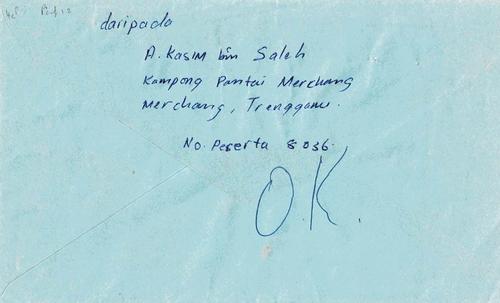 daripada
A. Kasim bin Saleh
Kampong Pantai Merchang
Merchang, Trengganu.
No. Peserta 8036.
O.K.